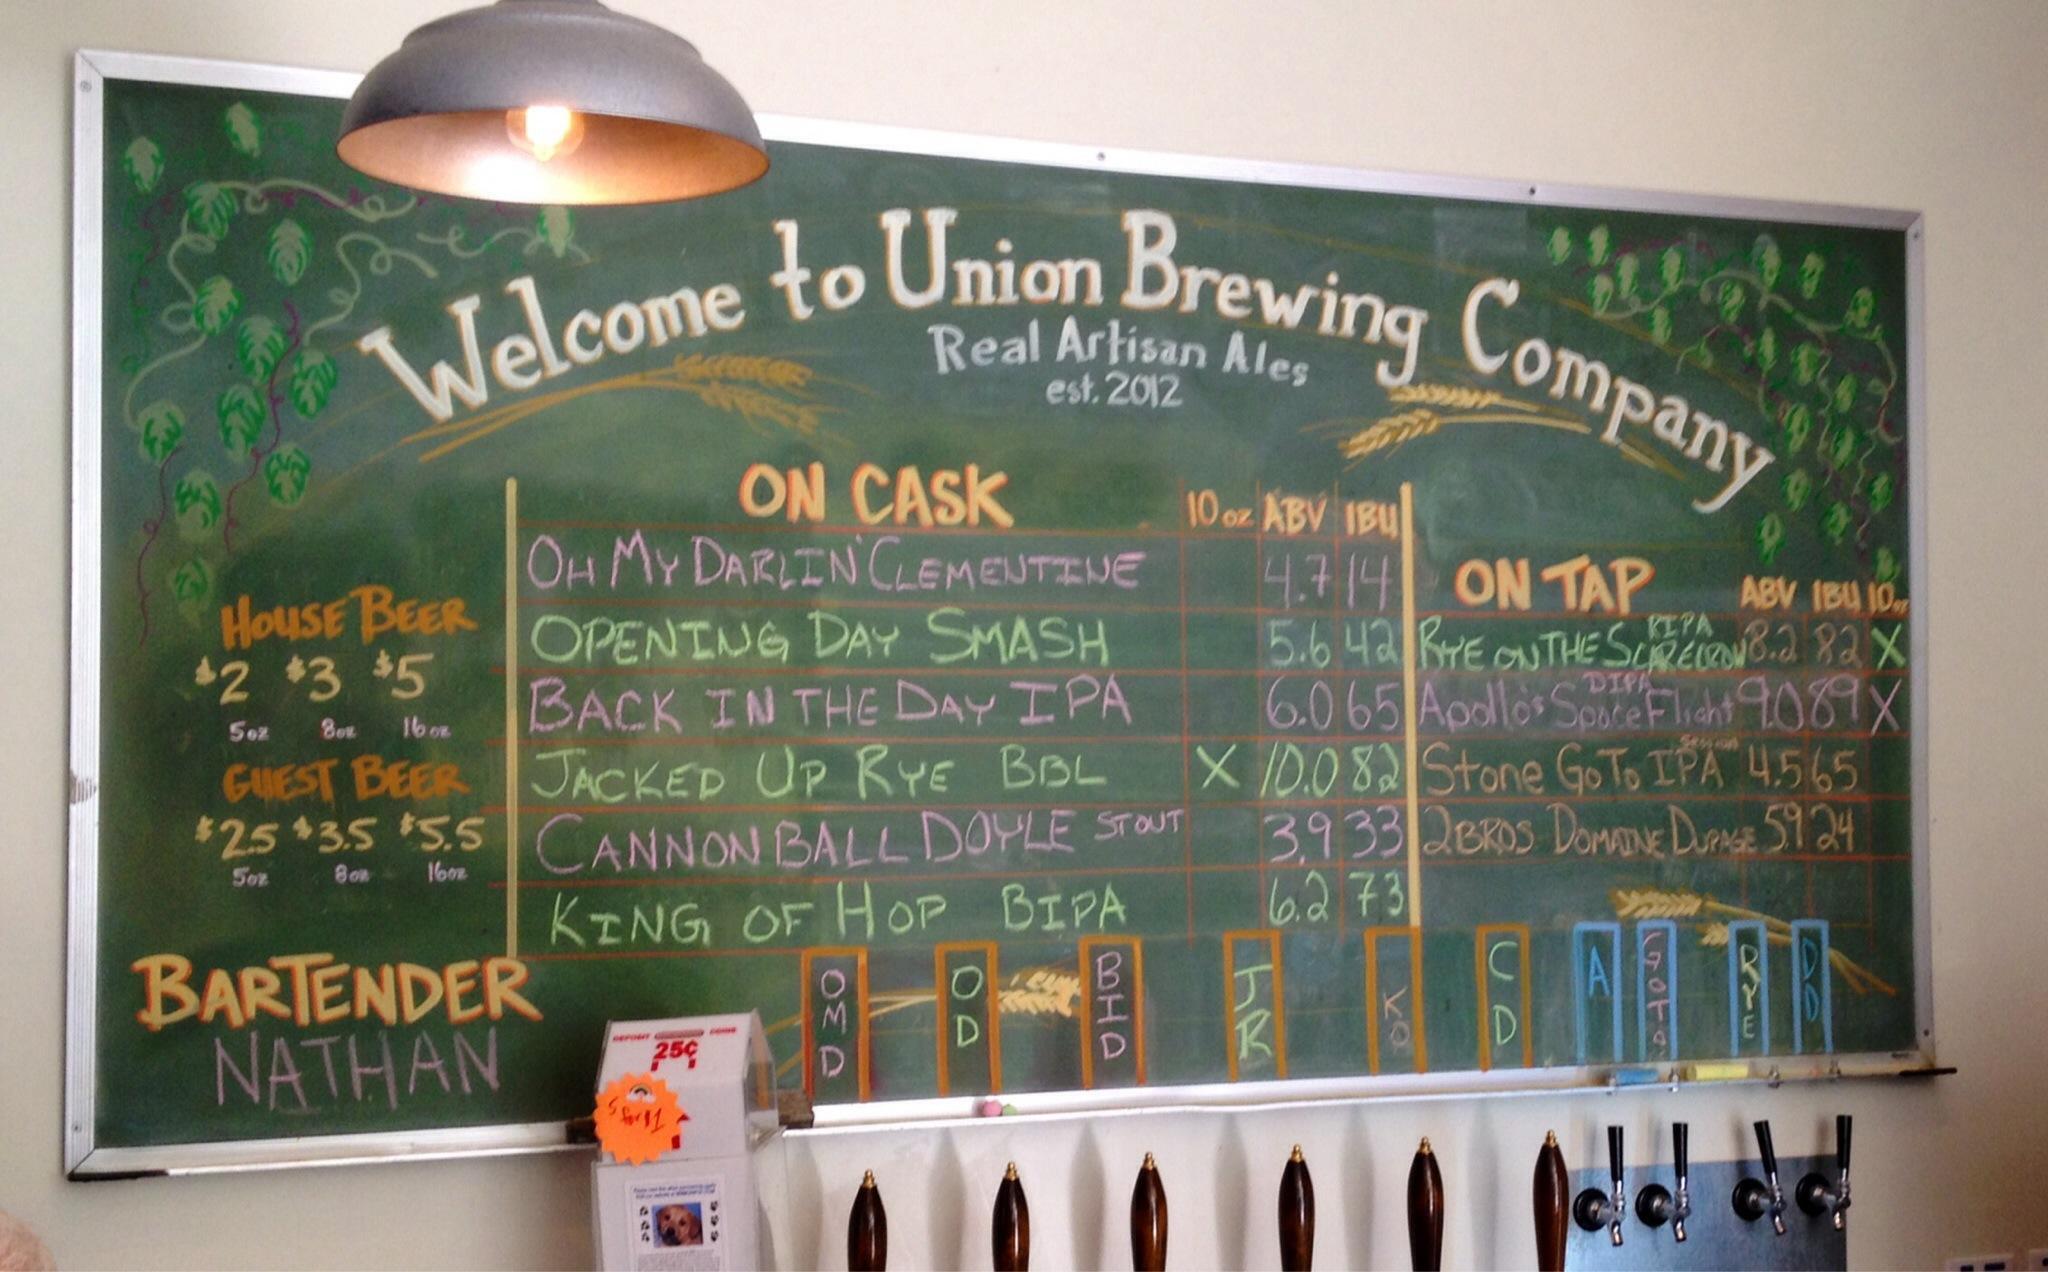 Welcome to Union Brewing Company
Real Artisan Ales
est. 2012
HOUSE BEER
$2 $3 $5
5oz 8oz 16oz
GUEST BEER
$2.5 $3.5 $5.5
5oz 8oz 16oz
BARTENDER
NATHAN
ON CASK 10oz ABV IBU
OH MY DARLIN' CLEMENTINE 4.7 14
OPENING DAY SMASH 5.6 42
BACK IN THE DAY IPA 6.0 65
JACKED UP RYE BBL X 10.0 82
CANNONBALL DOYLE STOUT 3.9 33
KING OF HOP BIPA 6.2 73
ON TAP ABV IBU 10oz
RYE ON THE SCARECROW RIPA 8.2 82 X
Apollo's Space Flight DIPA 9.0 89 X
Stone Go To Session IPA 4.5 65
2BROS DOMAINE DUPAGE 5.9 24
OMD
OD
BID
JR
KO
CD
A
GOTO
RYE
DD
DEPOSIT COINS
25¢
5 for $1